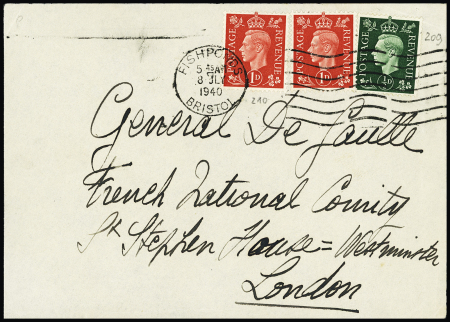 POSTAGE REVENUE 1D
POSTAGE REVENUE 1D
POSTAGE REVENUE ½D
209
FISHPONDS
5 45 AM
8 JLY
1940
BRISTOL
210
General De Gaulle
French National Comity
St Stephen House = Westminster
London